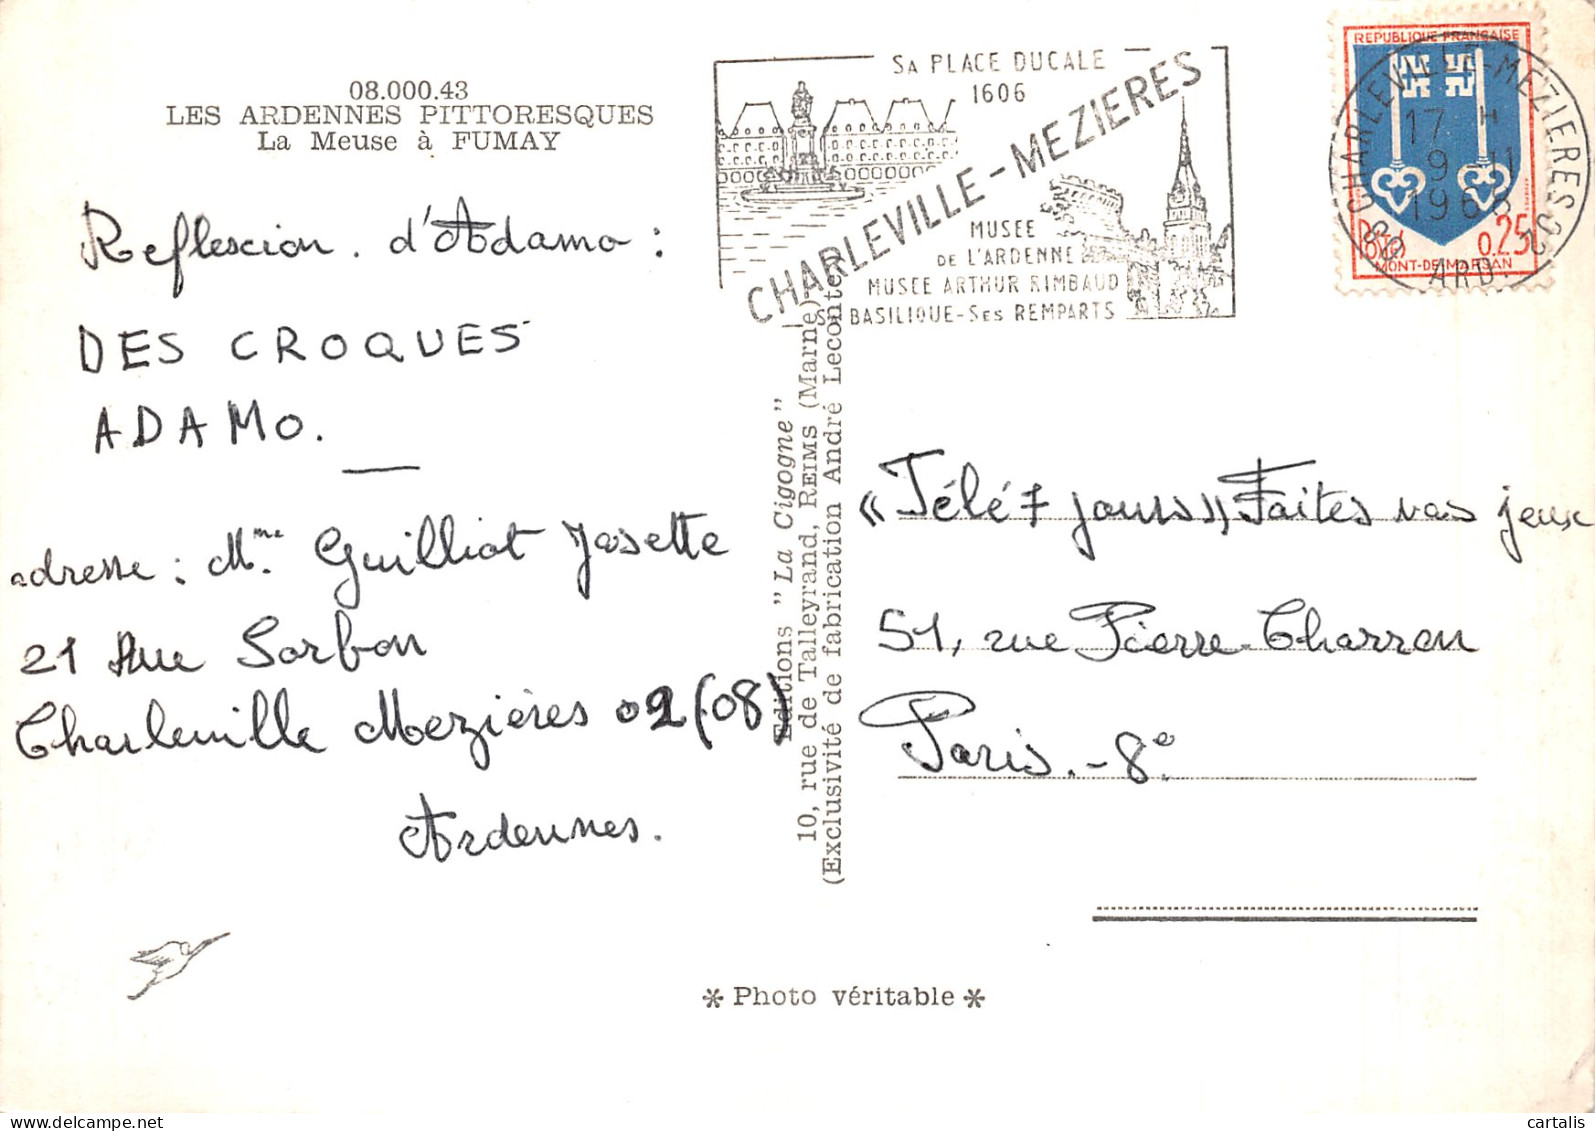 08.000.43
LES ARDENNES PITTORESQUES
La Meuse à FUMAY
Reflexion d'Adamo :
DES CROQUES
ADAMO.
adresse : Mme Guilliot Josette
21 Rue Sorbon
Charleville Mezières 02 (08)
Ardennes.
Editions "La Cigogne"
10, rue de Talleyrand, REIMS (Marne).
(Exclusivité de fabrication André Leconte)
SA PLACE DUCALE
1606
CHARLEVILLE-MEZIERES
MUSEE
DE L'ARDENNE
MUSEE ARTHUR RIMBAUD
SA BASILIQUE-SES REMPARTS
REPUBLIQUE FRANÇAISE
POSTES
0.25
MONT-DE-MARSAN
CHARLEVILLE-MEZIERES 02
17 H
9-11
1966
08 ARD.
«Télé 7 jours» Faites vos jeux
51, rue Pierre Charron
Paris.-8e.
* Photo véritable *
cartalis
delcampe.net